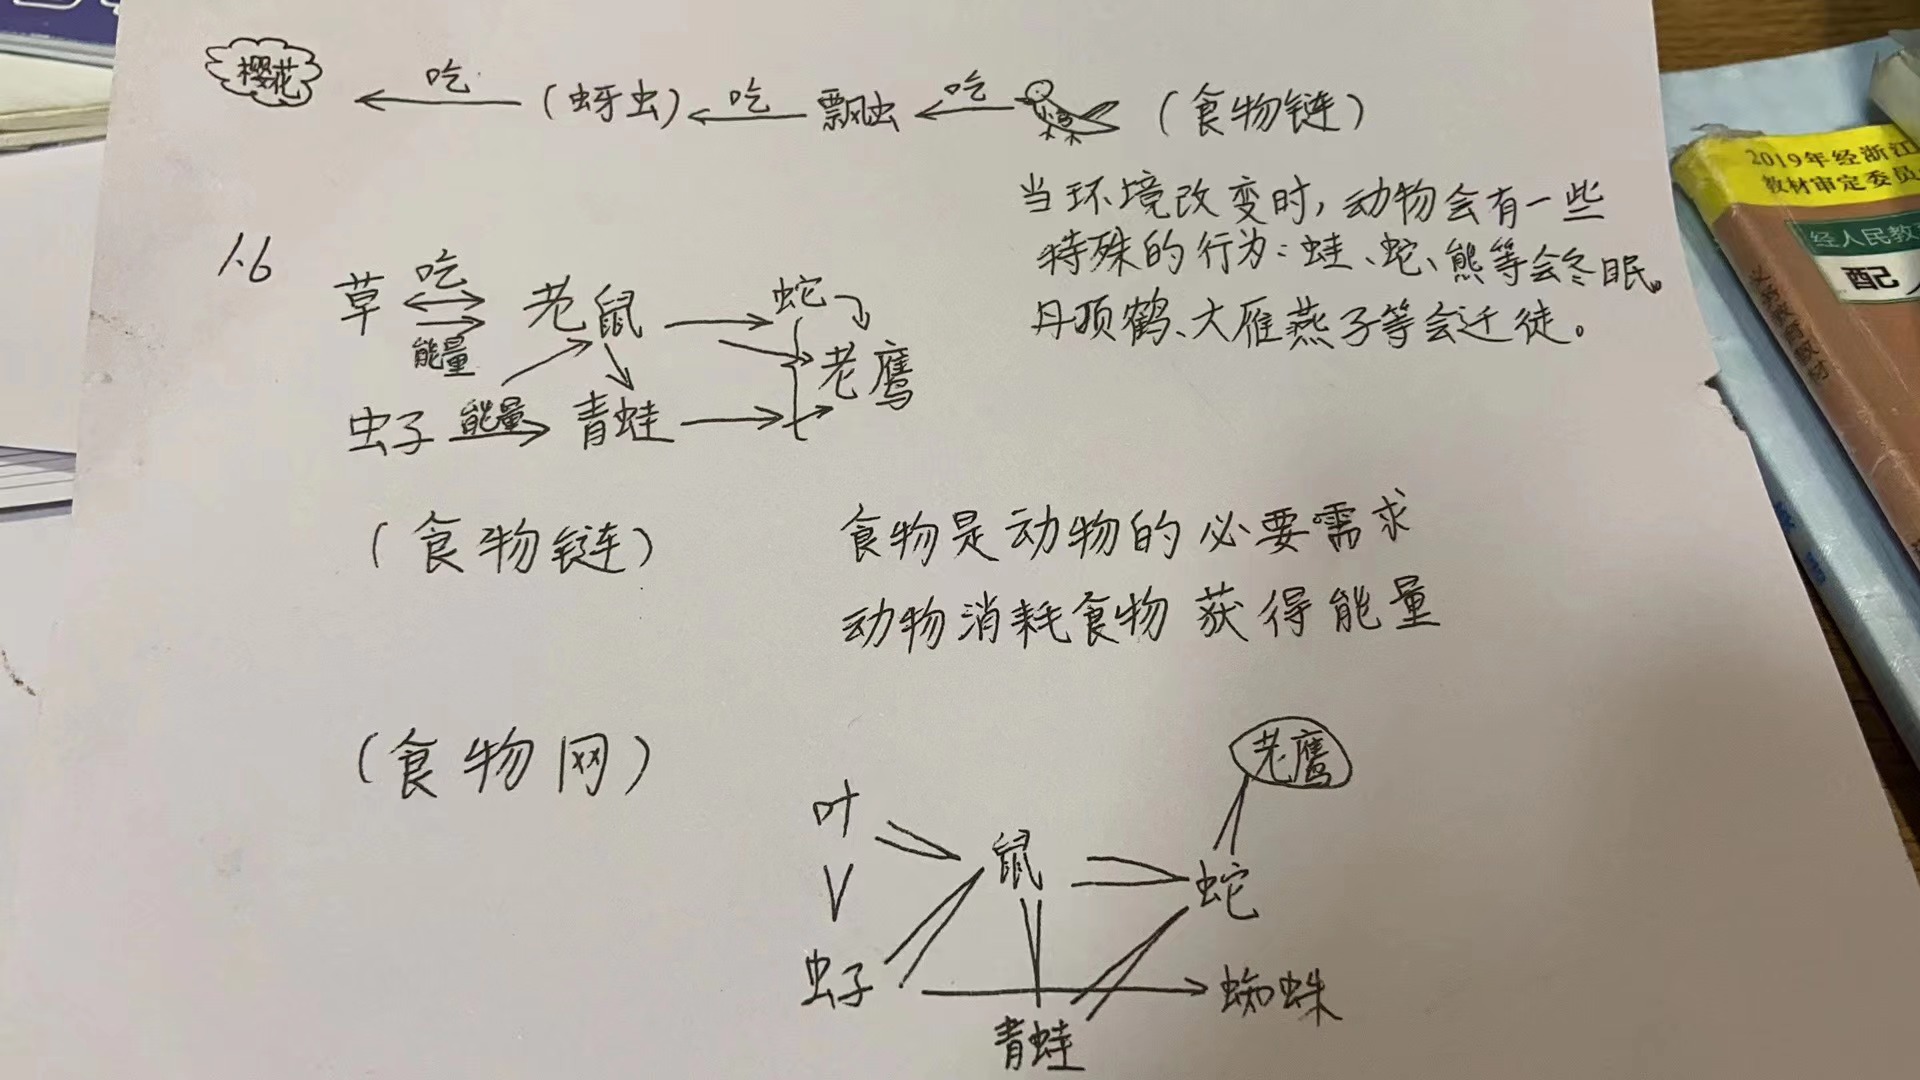 樱花 ← 吃 (蚜虫) ← 吃 瓢虫 ← 吃 (食物链)
当环境改变时,动物会有一些
特殊的行为:蛙、蛇、熊等会冬眠。
丹顶鹤、大雁燕子等会迁徒。
1.6
草 吃 老鼠 → 蛇
能量
老鹰
虫子 能量 青蛙
(食物链)
食物是动物的必要需求
动物消耗食物获得能量
(食物网)
老鹰
叶
鼠
蛇
虫子
蜘蛛
青蛙
2019年经浙江
教材审定委员
经人民教
配